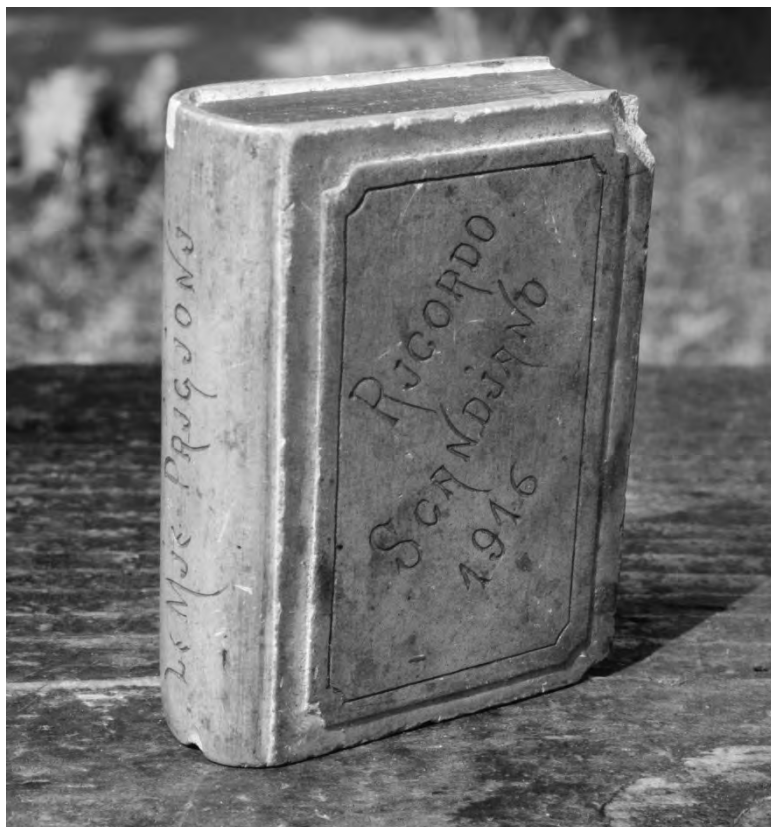 Le Mie Prigioni
Ricordo
Scandiano
1916